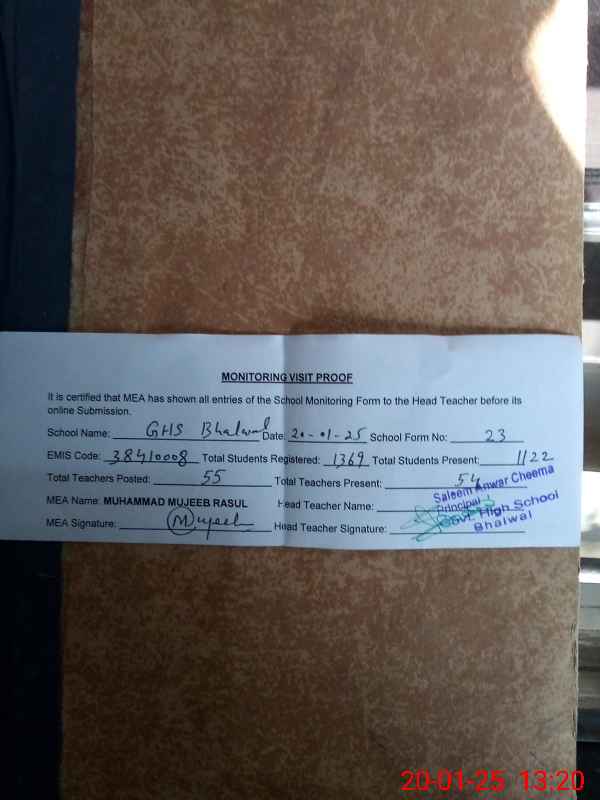 MONITORING VISIT PROOF
It is certified that MEA has shown all entries of the School Monitoring Form to the Head Teacher before its
online Submission.
School Name: GHS Bhalwal Date: 20-01-25 School Form No: 23
EMIS Code: 38410008 Total Students Registered: 1369 Total Students Present: 1122
Total Teachers Posted: 55 Total Teachers Present: 54
MEA Name: MUHAMMAD MUJEEB RASUL Head Teacher Name: Saleem Anwar Cheema
Principal
MEA Signature: Mujeeb Head Teacher Signature: Govt. High School
Bhalwal
20-01-25 13:20